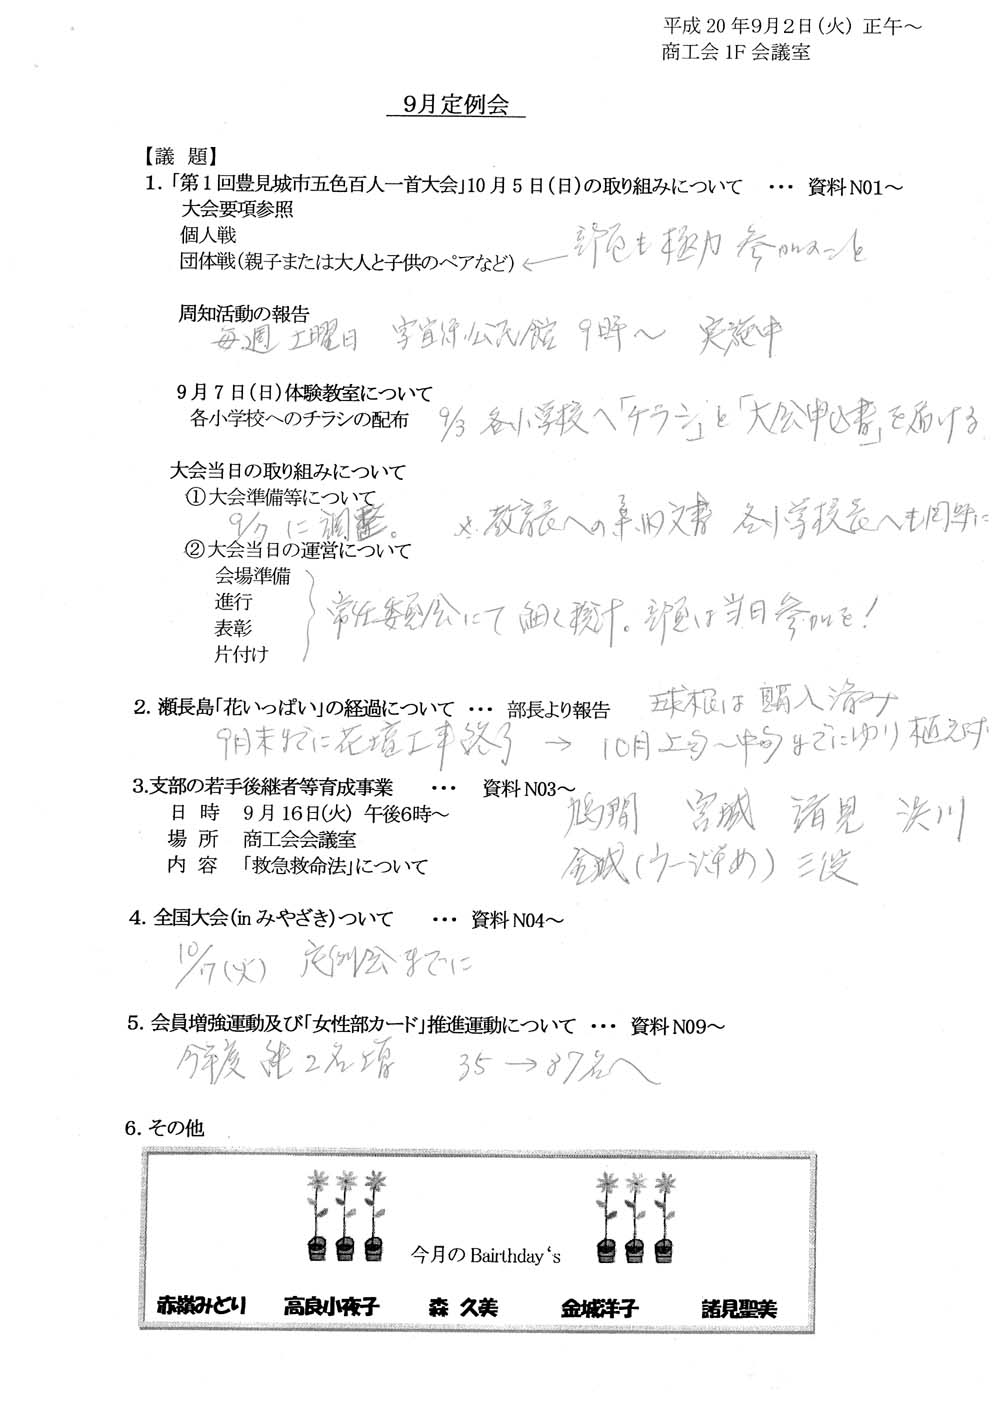 平成20年9月2日(火) 正午～
商工会1F会議室
9月定例会
【議 題】
1.「第1回豊見城市五色百人一首大会」10月5日(日)の取り組みについて ・・・ 資料N01～
大会要項参照
個人戦
団体戦(親子または大人と子供のペアなど) ← 部員も極力 参加のこと
周知活動の報告
毎週土曜日 字宜保公民館 9時～ 実施中
9月7日(日)体験教室について
各小学校へのチラシの配布 9/3 各小学校へ「チラシ」と「大会申込書」を届ける
大会当日の取り組みについて
①大会準備等について
9/7に調整。 教育長への 文書 各小学校長へも同時に
②大会当日の運営について
会場準備
進行
表彰
片付け
常任委員会にて細く検討。部員は当日参加を!
2. 瀬長島「花いっぱい」の経過について ・・・ 部長より報告 球根は購入済み
9月末までに花壇工事終了 → 10月上旬～中旬までにゆり植え付け
3.支部の若手後継者等育成事業 ・・・ 資料N03～
日 時 9月16日(火) 午後6時～ 鳩間 宮城 諸見 浜川
場 所 商工会会議室
内 容 「救急救命法」について 金城(ウージ染め) 三役
4. 全国大会(inみやざき)ついて ・・・ 資料N04～
10/7(火) 定例会までに
5. 会員増強運動及び「女性部カード」推進運動について ・・・ 資料N09～
今年度 純2名増 35→37名へ
6. その他
今月のBairthday‘s
赤嶺みどり 高良小夜子 森 久美 金城洋子 諸見聖美